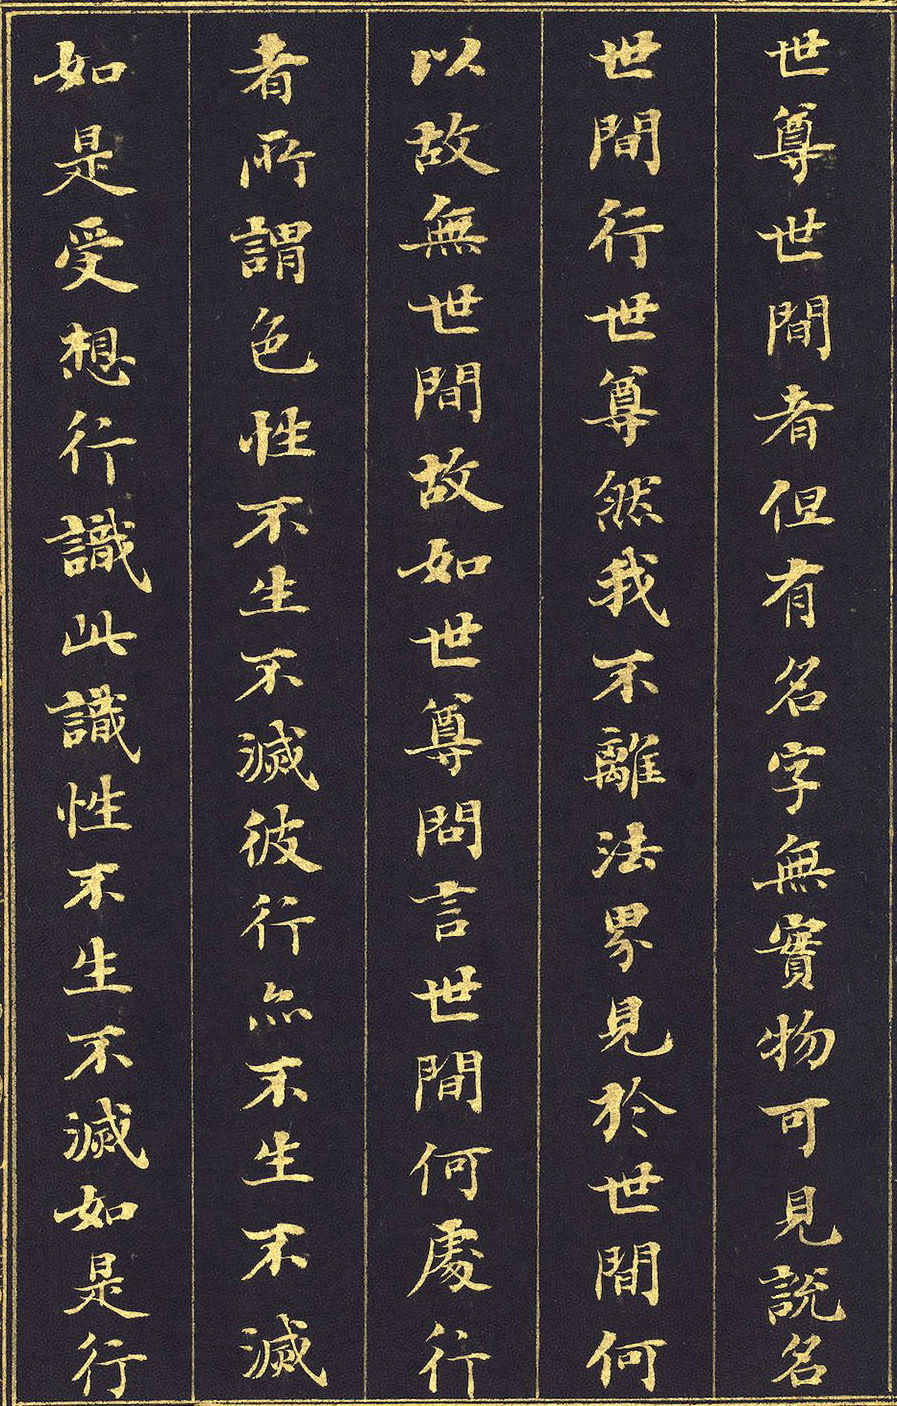 世尊世間者但有名字無實物可見說名
世間行世尊然我不離法界見於世間何
以故無世間故如世尊問言世間何處行
者所謂色性不生不滅彼行亦不生不滅
如是受想行識此識性不生不滅如是行